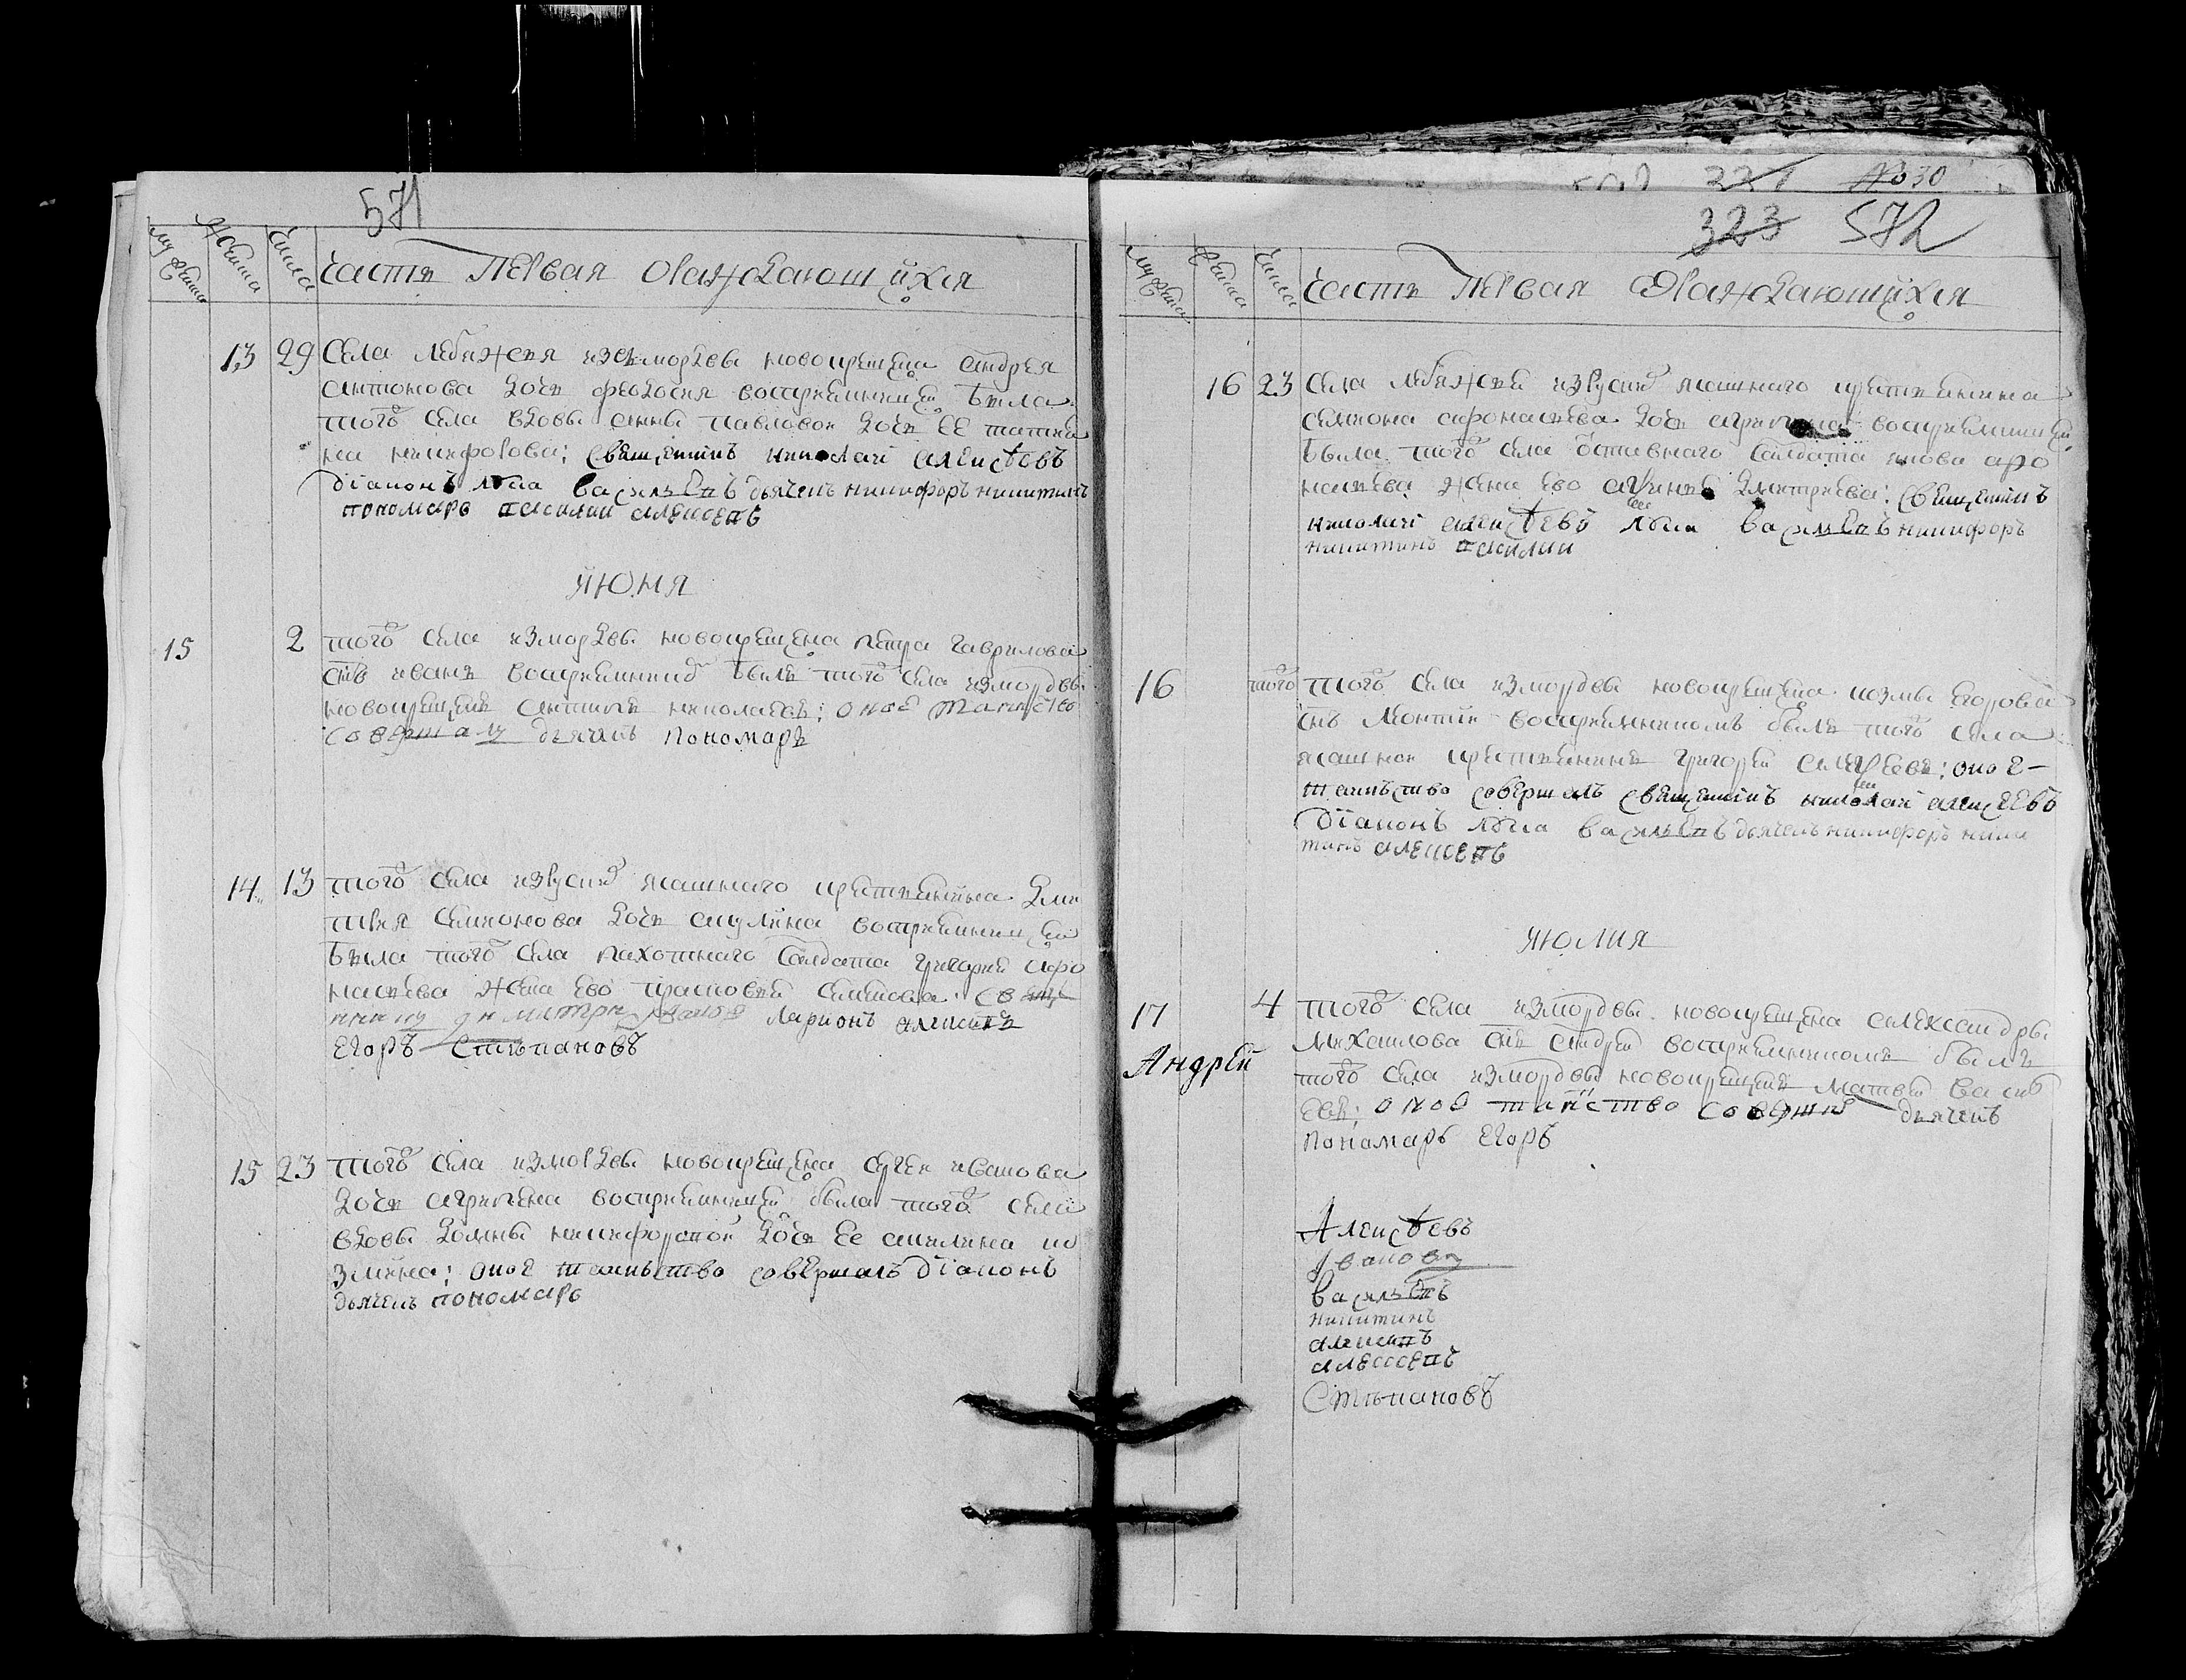 571
мужеска
женска
числа
часть первая о раждающихся
13 29 Села лебяжья измордвы новокрещена андрея
антонова дочь феодосия восприемницей была
того села вдовы анны павловой дочь ее татия
на никифорова: священникъ николай алексѣевъ
діаконъ илiа василевъ дьячекъ никифоръ никитинъ
пономарь василий алексеевъ
июня
15 2 того села измордвы новокрещена петра гаврилова
снъ иванъ восприемникъ былъ того села измордвы
новокрещенъ антипъ николаевъ: оное таинство
совершалъ дьячекъ пономаръ
14 13 того села изруских ясашнаго крестьянина дми
трия семионова дочь акулина восприемницей
была того села пахотнаго салдата григорья афо
насьева жена ево прасковья семионова: свяще
нникъ димитри ивановъ ларионъ алексеевъ
егоръ степановъ
15 23 того села измордвы новокрещена сергея иванова
дочь агрипена восприемницей была того села
вдовы домны никифоровой дочь ее акилина ко
змина: оное таинство совершалъ діаконъ
дьячекъ пономаръ
323 572
мужеска
женска
числа
часть первая ораждающихся
16 23 села лебяжья изруских ясашнаго крестьянина
семиона афонасьева дочь агрипина восприемницей
была того села отставнаго салдата якова афо
насьева жена ево дмитриева: священникъ
николаi алексѣевъ илiа василевъ никифоръ
никитинъ василии
16 того того села измордвы новокрещена козмы егорова
снъ леонтий восприемникомъ былъ того села
ясашной крестьянинъ григорей алексеевъ: оное
таинство совершалъ священникъ николаi алексеевъ
діаконъ илiа василевъ дьячекъ никифоръ ники
тинъ алексеевъ
июлия
17 4 того села измордвы новокрещена александры
михаилова снъ андрей восприемникомъ былъ
Андрей
того села измордвы новокрещенъ матвей васил
евъ: оное таинство соверши дьячекъ
пономаръ егоръ
Алексѣевъ
Ивановъ
василевъ
никитинъ
алексеевъ
алексеевъ
Степановъ